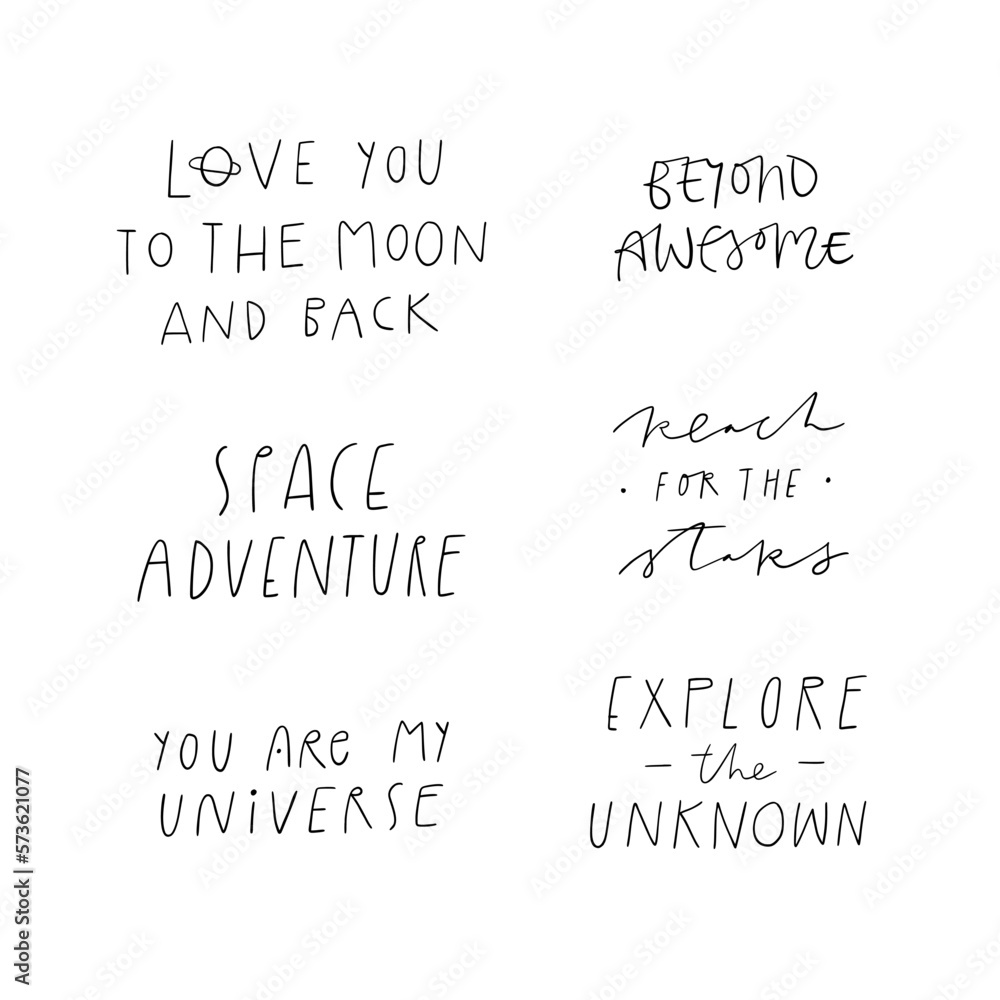 LOVE YOU
TO THE MOON
AND BACK
BEYOND
AWESOME
SPACE
ADVENTURE
Reach
· FOR THE ·
stars
YOU ARe MY
UNiVERSE
EXPLORE
– the –
UNKNOWN
Adobe Stock | #573621077